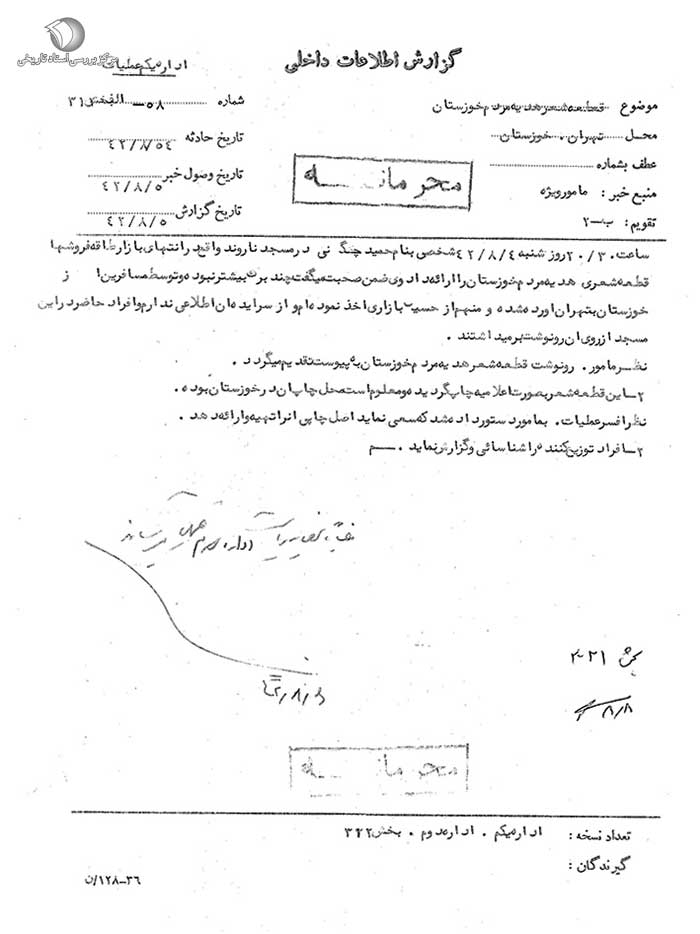 مرکز بررسی اسناد تاریخی
گزارش اطلاعات داخلی
اداره یکم عملیات
موضوع قطعه شعر هدیه مردم خوزستان
شماره ۵۸
محل تهران . خوزستان
تاریخ حادثه ۴۲/۸/۴
عطف بشماره
تاریخ وصول خبر ۴۲/۸/۵
منبع خبر : مامور ویژه
تاریخ گزارش ۴۲/۸/۵
تقویم : ب-۲
محرمانه
ساعت ۲۰/۳۰ روز شنبه ۴۲/۸/۴ شخصی بنام حمید در مسجد ناروند واقع در انتهای بازار طاقه فروشها
قطعه شعری هدیه مردم خوزستان را ارائه داد وی ضمن صحبت میگفت چند برگ بیشتر نبوده و توسط مسافرین از
خوزستان بتهران آورده شده و منهم از حسیب بازاری اخذ نموده ام و از سراینده آن اطلاعی ندارم و افراد حاضر در این
مسجد از روی آن رونوشت برمیداشتند .
نظر مامور . رونوشت قطعه شعر هدیه مردم خوزستان به پیوست تقدیم میگردد .
۲ـ این قطعه شعر بصورت اعلامیه چاپ گردیده و معلوم است محل چاپ آن در خوزستان بوده .
نظر افسر عملیات . بمامور دستور داده شد که سعی نماید اصل چاپی آنرا تهیه و ارائه دهد .
۲ـ افراد توزیع کننده را شناسائی و گزارش نماید . م
۸/۸
محرمانه
تعداد نسخه : اداره یکم . اداره دوم . بخش ۳۲۲
گیرندگان :
۳۶-۱۲۸/ن